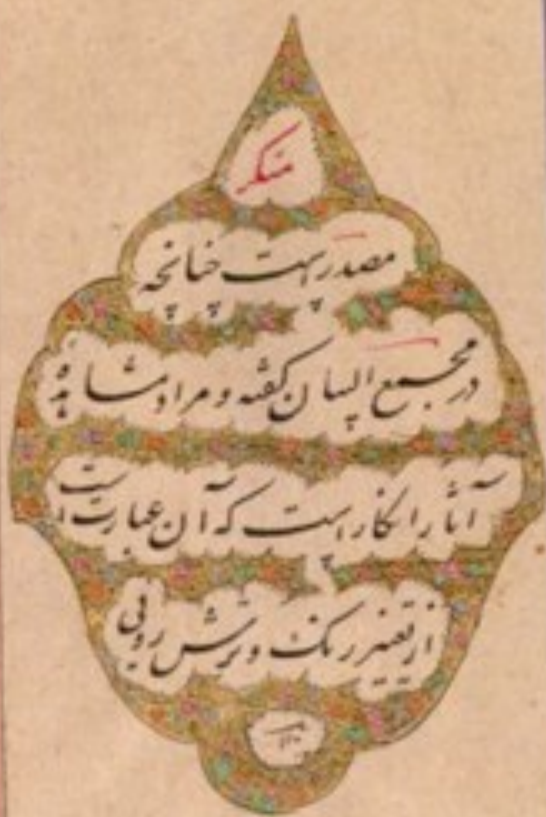 منکر
مصدر است چنانچه
در مجمع البیان گفته و مراد مشاهده
آثار انکار است که آن عبارتست
از تغییر رنگ و ترش رویی